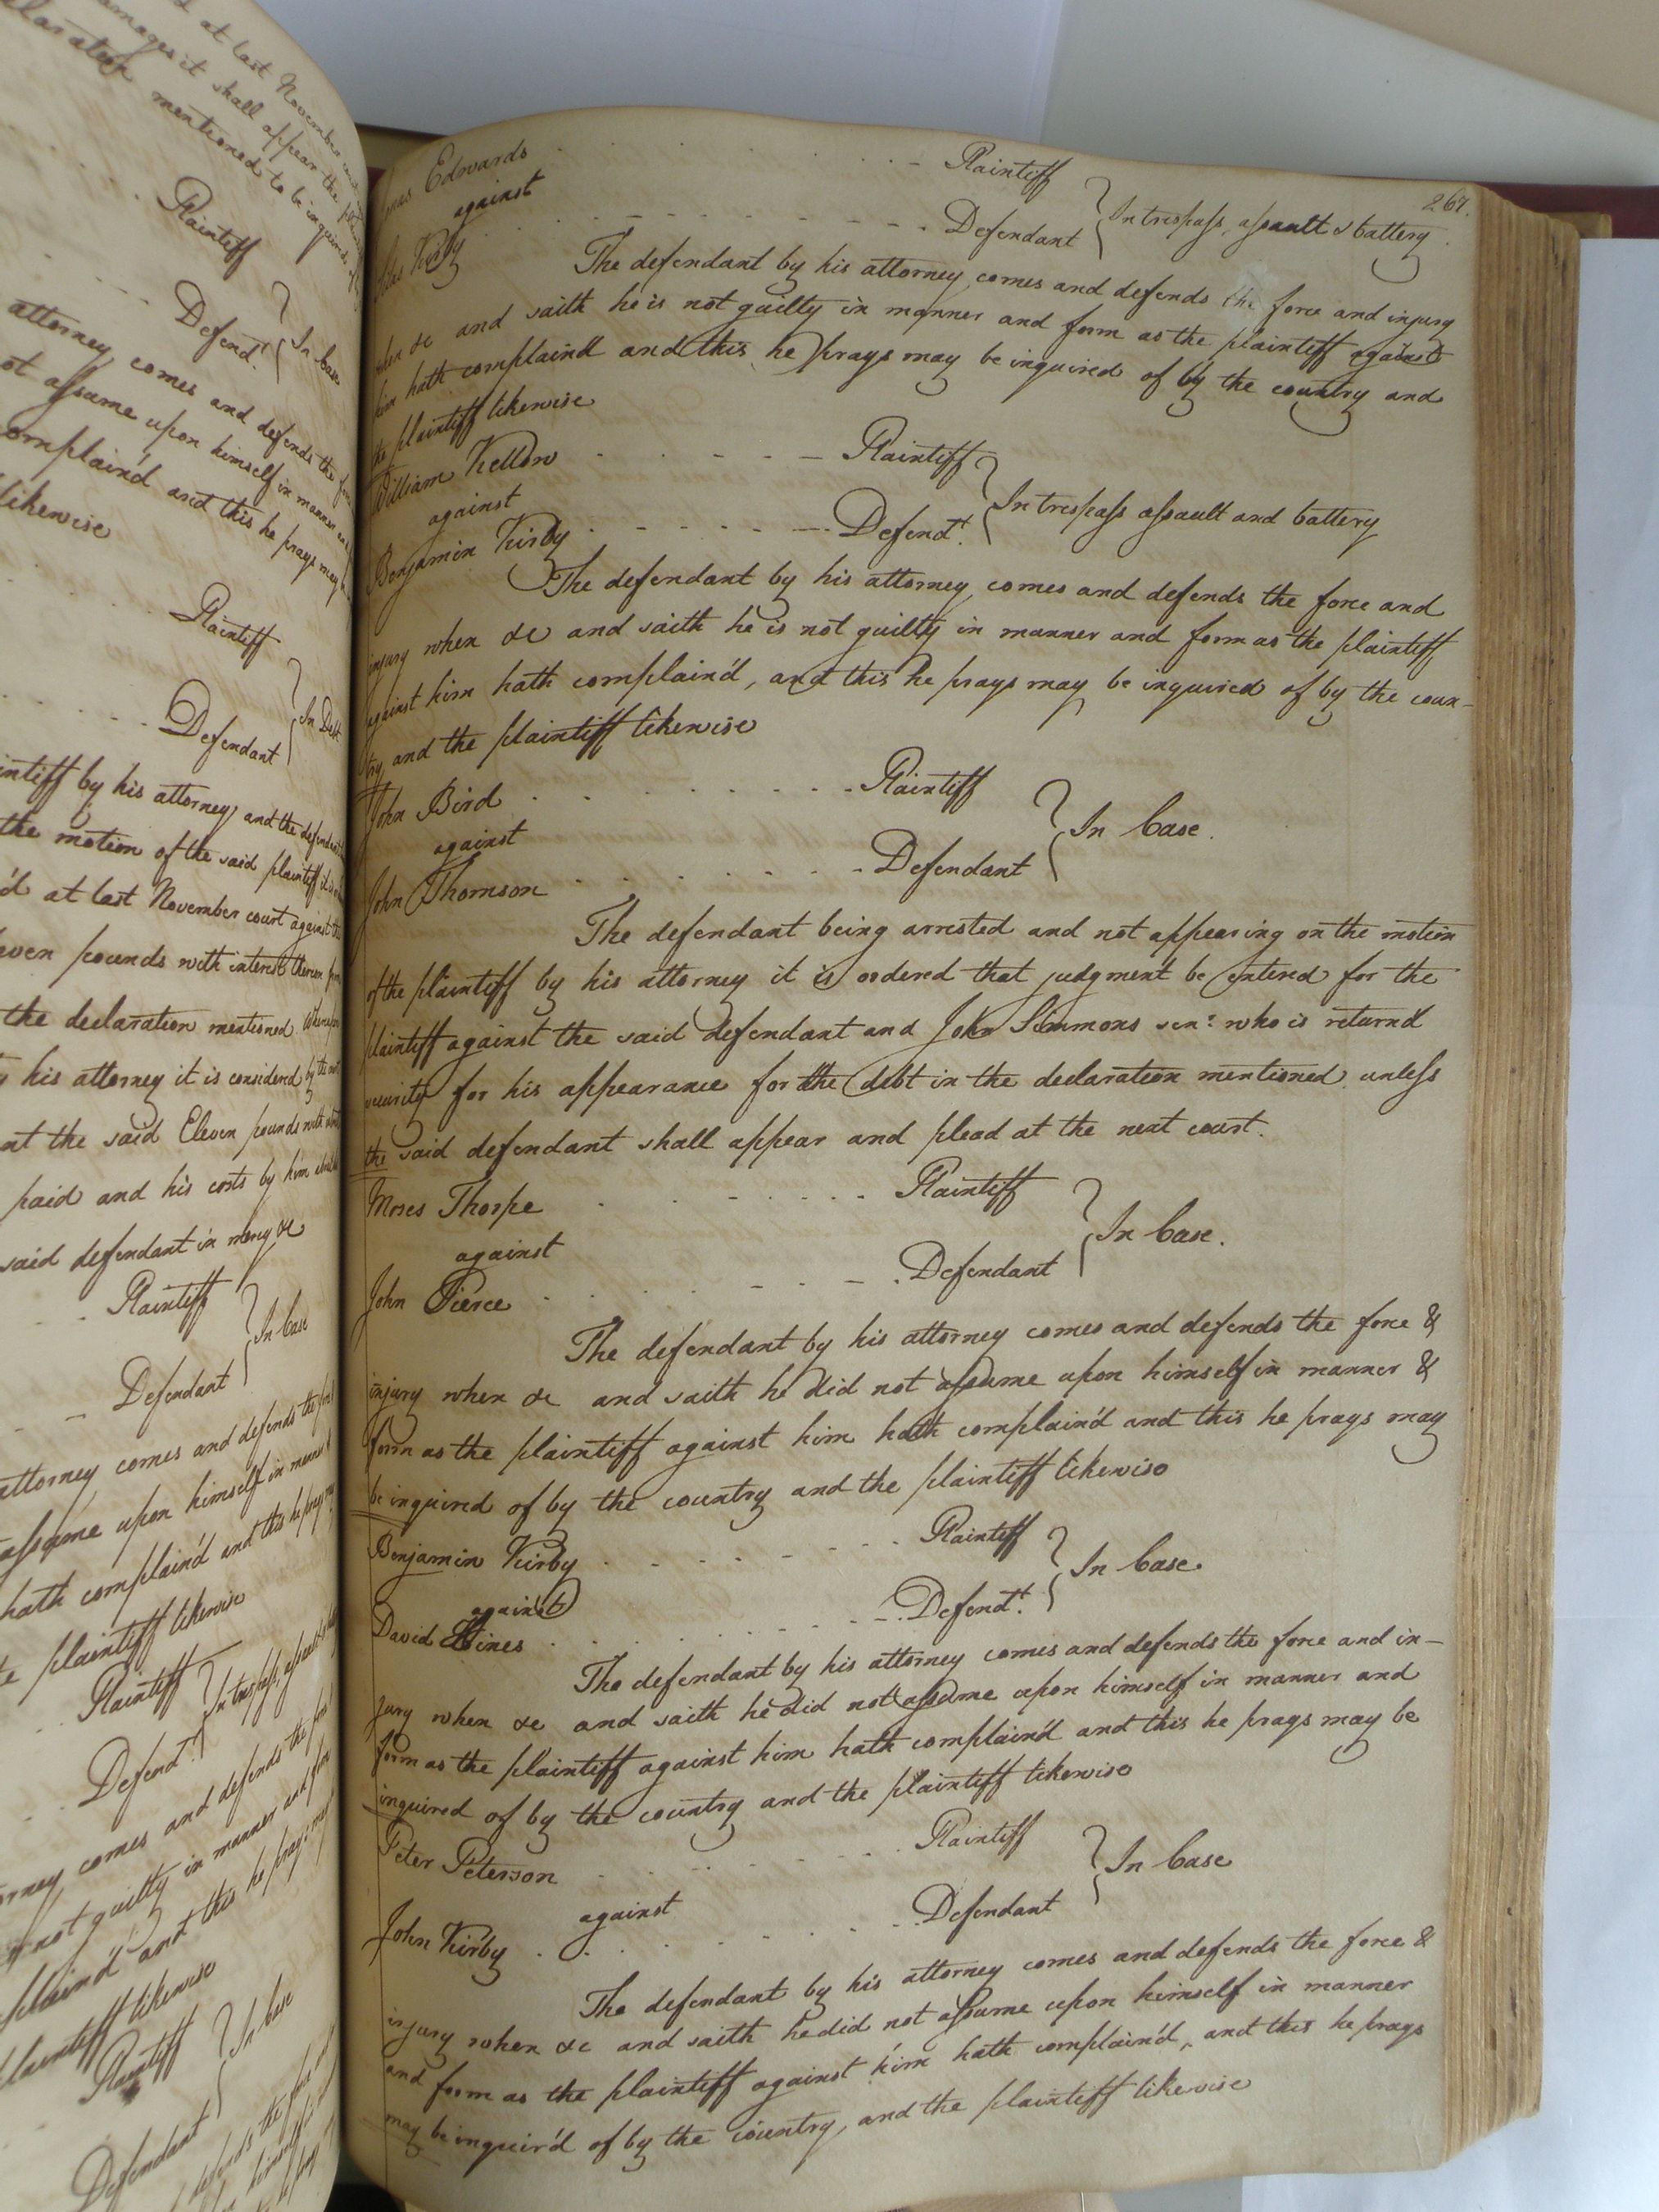 d at last November
amages it shall appear the
laration mentioned to be inquired of
Plaintiff
Defend.t In Case
attorney comes and defends the
ot assume upon himself in manner
omplain'd and this he prays may
likewise
Plaintiff
Defendant In Debt
intiff by his attorney and the defendant
the motion of the said plaintiff it is
'd at last November court against the
even pounds with interest thereon from
the declaration mentioned Whereupon
his attorney it is considered by the
at the said Eleven pounds with
paid and his costs by him
said defendant in mercy &c
Plaintiff
Defendant In Case
attorney comes and defends the
assume upon himself in manner
hath complain'd and this he prays
e plaintiff likewise
Plaintiff
Defend.t In trespass, assault &
orney comes and defends the
not guilty in manner and form
plain'd and this he prays may
plaintiff likewise
Plaintiff
Defendant In Case
defends the force and
267.
Edwards Plaintiff
against
Kirby Defendant In trespass, assault & battery
The defendant by his attorney comes and defends the force and injury
when &c and saith he is not guilty in manner and form as the plaintiff against
him hath complaind and this he prays may be inquired of by the country and
the plaintiff likewise
William Kellow Plaintiff
against
Benjamin Kirby Defend.t In trespass assault and battery
The defendant by his attorney comes and defends the force and
injury when &c and saith he is not guilty in manner and form as the plaintiff
against him hath complain'd, and this he prays may be inquired of by the coun-
try and the plaintiff likewise
John Bird Plaintiff
against
John Thomson Defendant In Case.
The defendant being arrested and not appearing on the motion
of the plaintiff by his attorney it is ordered that judgment be entered for the
plaintiff against the said defendant and John Simmons sen.r who is return'd
security for his appearance for the debt in the declaration mentioned unless
the said defendant shall appear and plead at the next court.
Moses Thorpe Plaintiff
against
John Pierce Defendant In Case.
The defendant by his attorney comes and defends the force &
injury when &c and saith he did not assume upon himself in manner &
form as the plaintiff against him hath complain'd and this he prays may
be inquired of by the country and the plaintiff likewise
Benjamin Kirby Plaintiff
against
David Hines Defend.t In Case.
The defendant by his attorney comes and defends the force and in-
jury when &c and saith he did not assume upon himself in manner and
form as the plaintiff against him hath complain'd and this he prays may be
inquired of by the country and the plaintiff likewise
Peter Peterson Plaintiff
against
John Kirby Defendant In Case
The defendant by his attorney comes and defends the force &
injury when &c and saith he did not assume upon himself in manner
and form as the plaintiff against him hath complain'd, and this he prays
may be inquir'd of by the country, and the plaintiff likewise